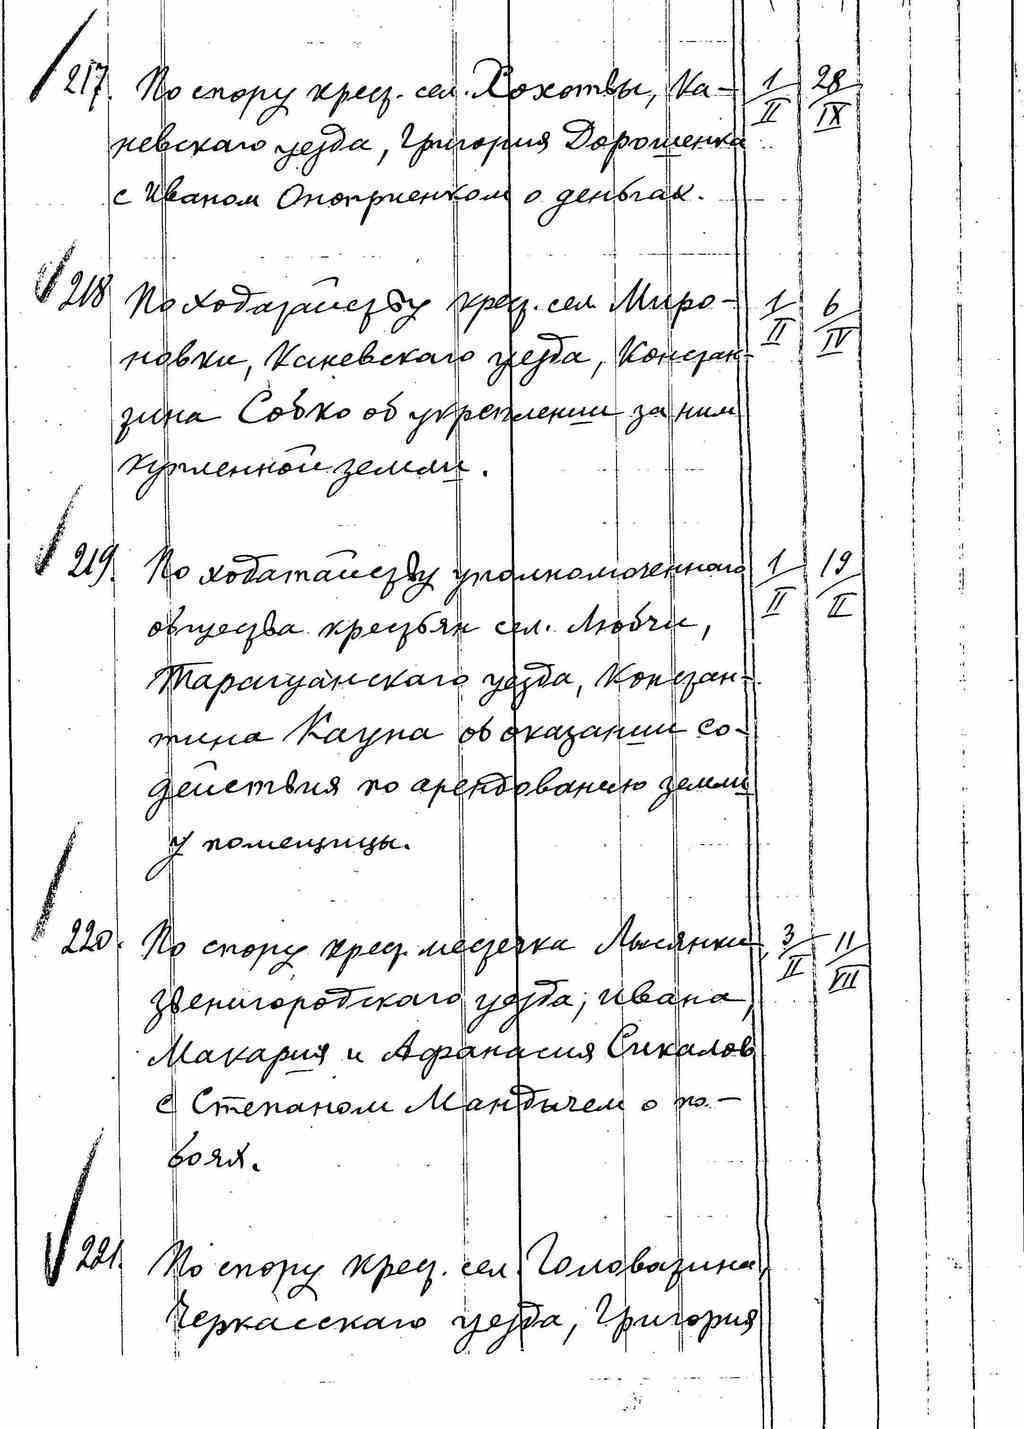 217. По спору крест. сел. Хохотвы, Ка- 1/II 28/IX
невскаго уезда, Григория Дорошенка
с Иваном Оноприенком о деньгах.
218 По ходатайству крест. сел. Миро- 1/II 6/IV
новки, Каневскаго уезда, Констан-
тина Совко об укреплении за ним
купленной земли.
219. По ходатайству уполномоченнаго 1/II 19/II
общества крестьян сел. Любчи,
Таращанскаго уезда, Констан-
тина Кауна об оказании со-
действия по арендованию земли
у помещицы.
220. По спору крест. местечка Лысянки, 3/II 11/VII
Звенигородскаго уезда, Ивана,
Макария и Афанасия Сикалов
с Степаном Мандычем о по-
боях.
221. По спору крест. сел. Головатина,
Черкасскаго уезда, Григория